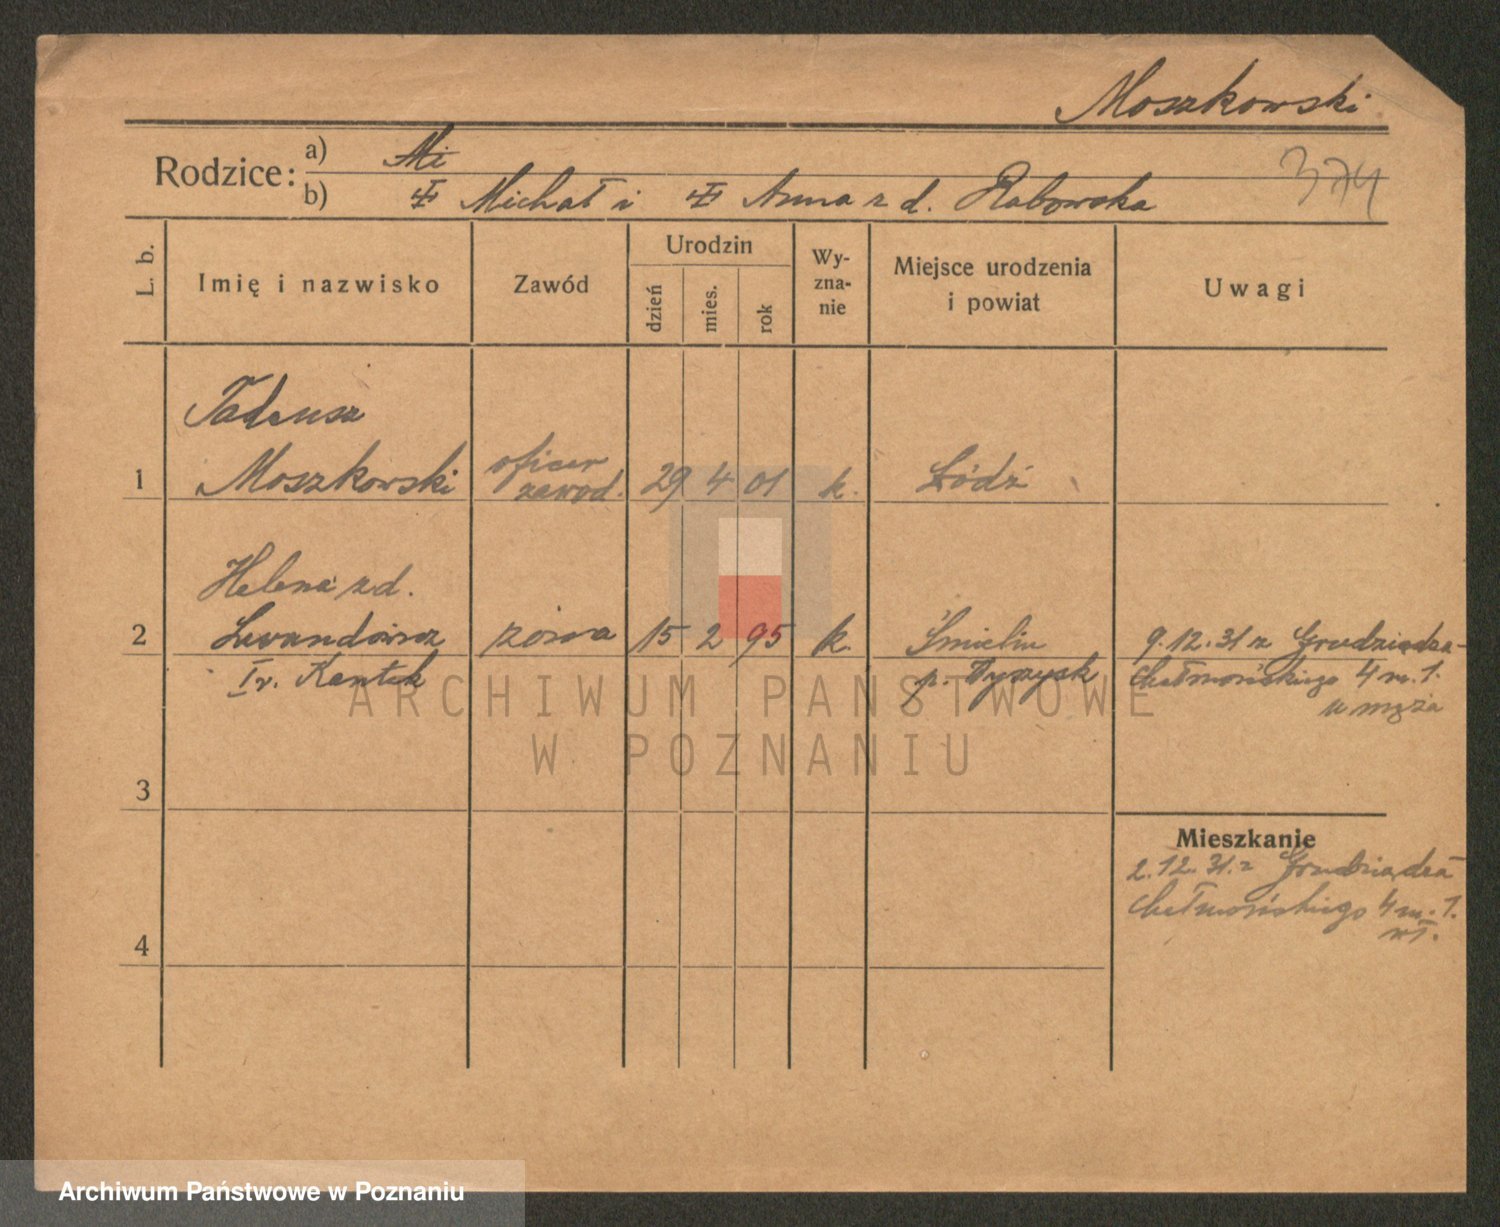 Moszkowski
Rodzice:
a) Mi
b) Michał i Anna z d. Rabowska
374
L. b.
Imię i nazwisko
Zawód
Urodzin
dzień
mies.
rok
Wy-
zna-
nie
Miejsce urodzenia
i powiat
Uwagi
Tadeusz
1 Moszkowski
oficer
zawod.
29 4 01 k. Łódź
Helena z d.
2 Lewandowicz
I v. Kantek
żona 15 2 95 k.
Śmielin
p. Wyrzysk
9.12.31 z Grudziądza
Chełmońskiego 4 m. 1.
u męża
3
4
Mieszkanie
2.12.31. z Grudziądza
Chełmońskiego 4 m. 1.
wł.
ARCHIWUM PAŃSTWOWE
W POZNANIU
Archiwum Państwowe w Poznaniu